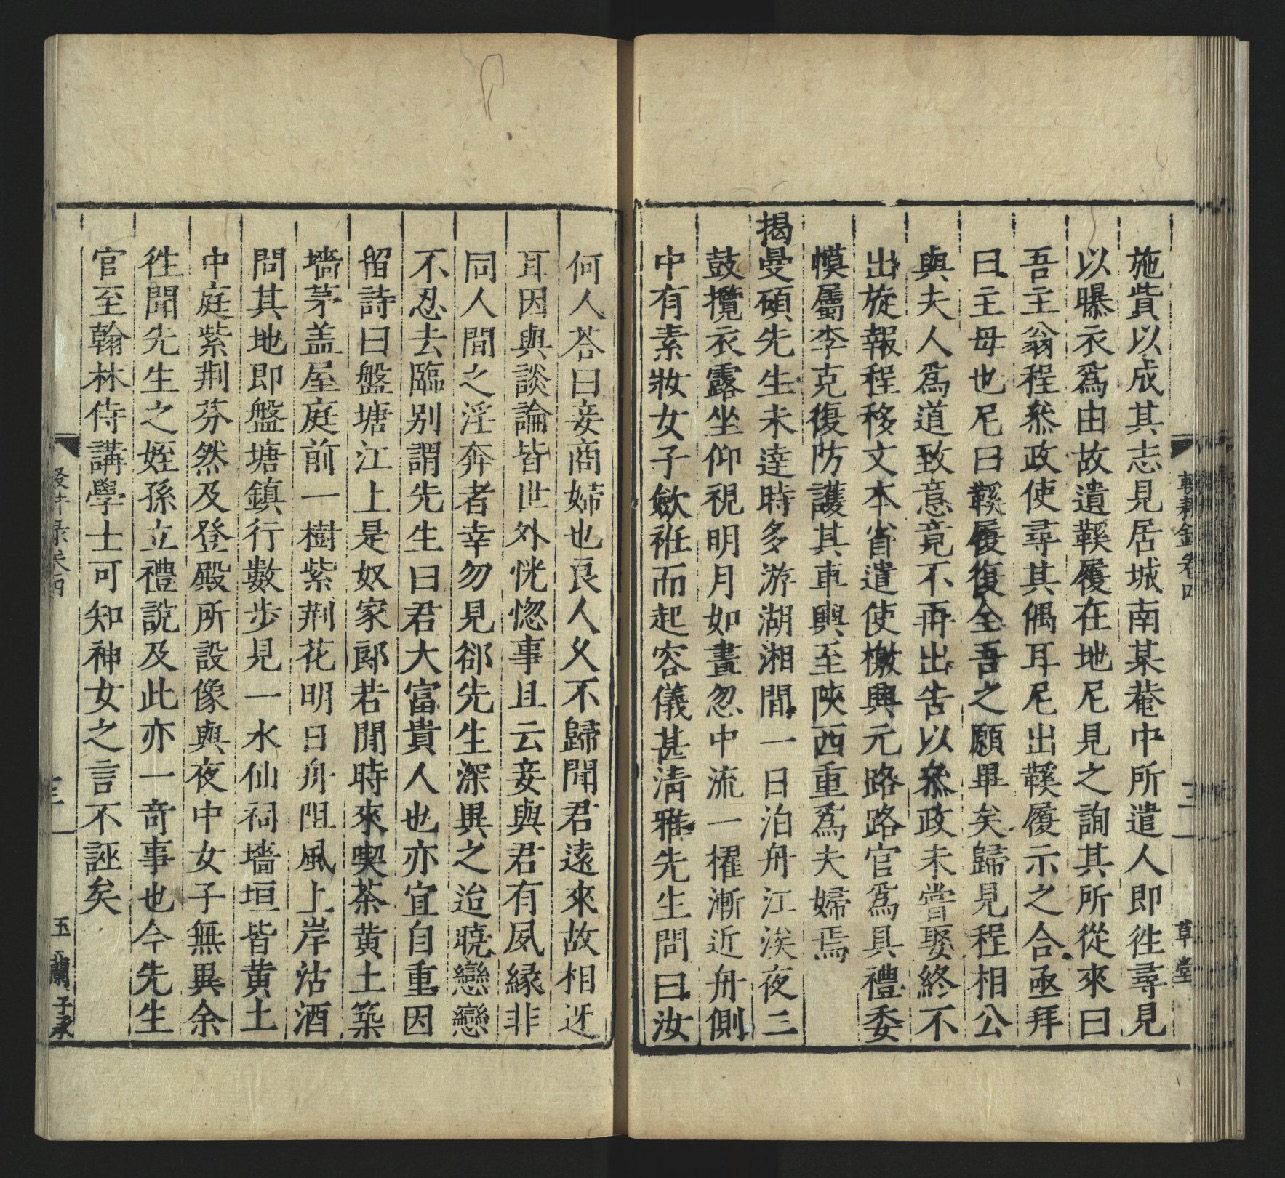 施貲以成其志見居城南某菴中所遣人即徃尋見
以曝衣爲由故遺鞵履在地尼見之詢其所從來曰
吾主翁程叅政使尋其偶耳尼出鞵履示之合亟拜
曰主母也尼曰鞵履復全吾之願畢矣歸見程相公
與夫人爲道致意竟不再出告以叅政未嘗娶終不
出旋報程移文本省遣使檄興元路路官爲具禮委
幙屬李克復防護其車輿至陜西重爲夫婦焉
揭曼碩先生未達時多游湖湘間一日泊舟江涘夜二
鼓攬衣露坐仰視明月如晝忽中流一櫂漸近舟側
中有素妝女子斂袵而起容儀甚清雅先生問曰汝
何人荅曰妾商婦也良人久不歸聞君遠來故相迓
耳因與談論皆世外恍惚事且云妾與君有夙縁非
同人間之淫奔者幸勿見郤先生深異之迨曉戀戀
不忍去臨别謂先生曰君大富貴人也亦宜自重因
留詩曰盤塘江上是奴家郎若閒時來喫茶黄土築
墻茅盖屋庭前一樹紫荆花明日舟阻風上岸沽酒
問其地即盤塘鎮行數步見一水仙祠墻垣皆黄土
中庭紫荆芬然及登殿所設像與夜中女子無異余
徃聞先生之姪孫立禮説及此亦一竒事也今先生
官至翰林侍講學士可知神女之言不誣矣